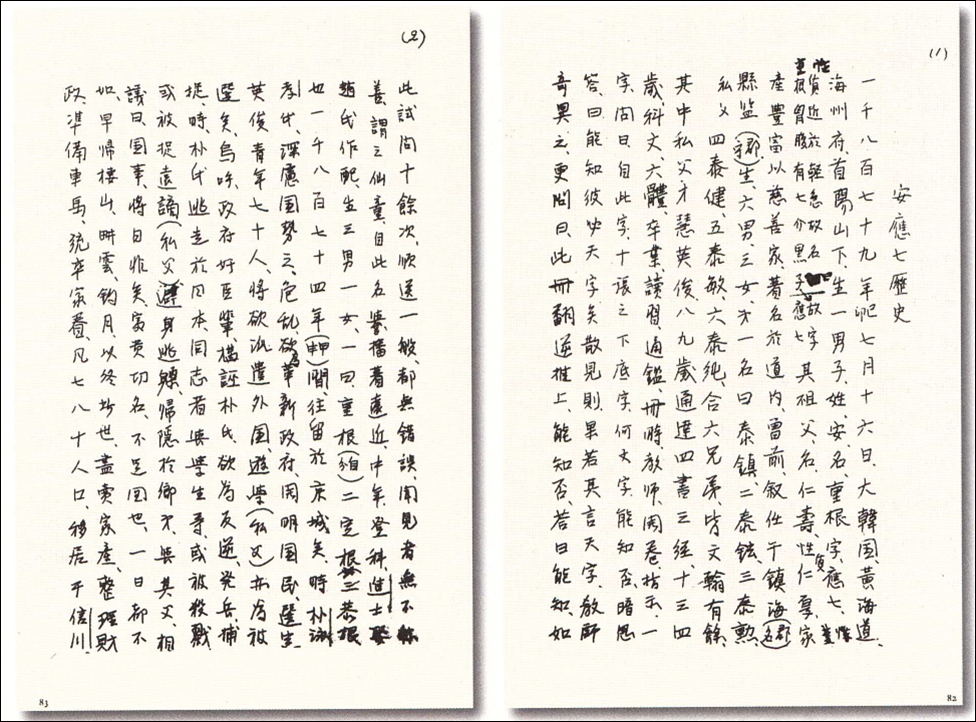 (1)
安應七歷史
一千八百七十九年 七月十六日、大韓国黃海道、
海州府、首陽山下、生一男子、姓、安、名、重根、字、應七、
性質近於輕急故名重根胸腹有七介黑子故字應七 其祖父、名、仁壽、性仁厚、家
產豊富、以慈善家著名於道內、曾前、叙仕于鎮海(郡名)
縣監(鄉)、生六男、三女、才一名曰泰鎮、二泰鉉、三泰勳、
私父 四泰健、五泰敏、六泰純、合六兄弟、皆文翰有餘、
其中私父才慧英俊、八九歲通達四書三経、十三四
歲、科文、六體、卒業讀習、通鑑、冊時敎師、開卷、指示、一
字、問曰、自此字、十張之下底字、何大字、能知否、暗思
答、曰能知、彼必天字矣、散見則、果若其言天字、敎師
奇異之、更問曰、此冊翻逆推上、能知否、答曰能知、如
82
(2)
此試問十餘次、順逆一般、都無錯誤、聞見者無不称
善、謂之仙童、自此名譽、播著遠近、中年、登科進士、娶
趙氏作配、生三男一女、一曰重根(自)二定根、三恭根
也一千八百七十四年(甲申)間、往留於京城矣、時朴泳
孝氏、深慮国勢之、危乱、欲為革新政府、開明国民、選生
英俊青年七十人、將欲派遣外国、遊学、(私父)亦為被
選矣、烏呼、政府奸臣輩、搆誣朴氏、欲為反逆、発兵捕
捉、時、朴氏逃走於日本、同志者与學生等、或被殺戮
或被捉遠謫(私父)避身逃躱、帰隠於鄉才、與其父、相
議曰、国事、將日非矣、富貴功名、不足圖也、一日都不
如、早帰棲山、畊雲、釣月、以終抄世、盡賣家產、整理財
政、準備車馬、統率家眷、凡七八十人口、移居于信川、
83